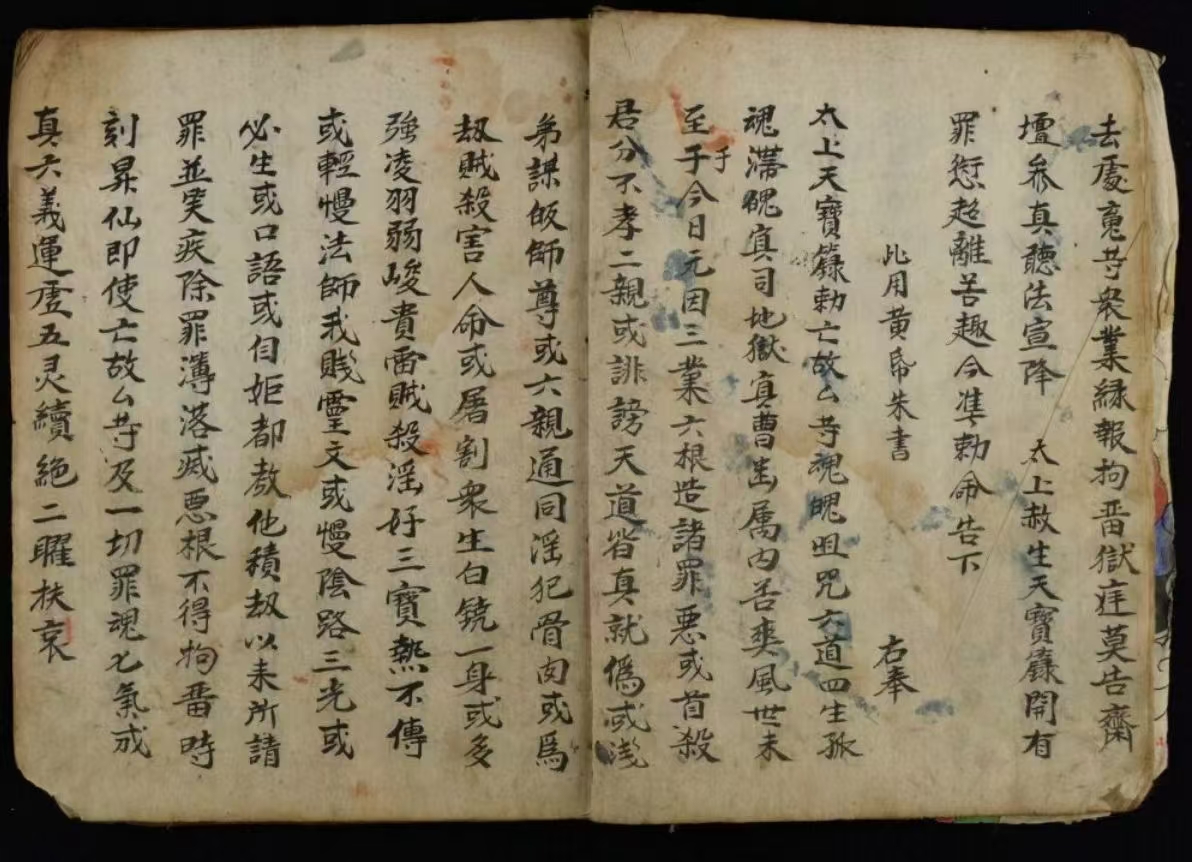 去處寃䓁衆業緑報拘畨獄㾏莫告齋
壇参真聽法宣降　太上赦生天寶籙開有
罪愆超離苦趣今准勅命告下
右奉
此用黄帋朱書
太上天寶籙勅亡故厶䓁魂魄咀咒六道四生孤
魂滯魄㝠司地獄㝠曹出属内否爽風世未
至于今日元因三業六根造諸罪悪或首殺
于
君分不孝二親或誹謗天道省真就僞或淺
弟謀皈師尊或六親通同淫犯骨肉或爲
刼賊殺害人命或屠割衆生白鐃一身或多
強凌羽弱峻貴雷賊殺淫好三寶熱不傳
或輕慢法師我賎靈文或慢陰路三光或
必生或口語或自姖都教他積刼以来所請
罪並笑疾除罪薄落滅悪根不得拘畨時
刻昇仙即使亡故厶䓁及一切罪魂七氣成
真六義運虗五灵續絶二曜扶衰